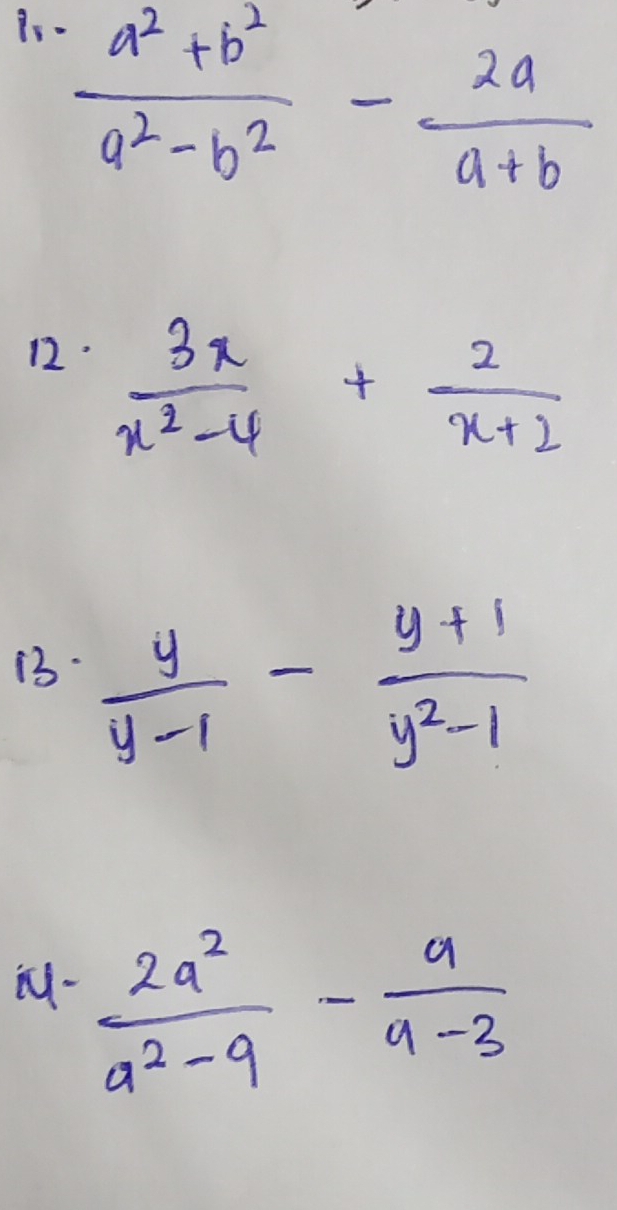 11. a² + b² / a² - b² - 2a / a + b
12. 3x / x² - 4 + 2 / x + 2
13. y / y - 1 - y + 1 / y² - 1
14. 2a² / a² - 9 - a / a - 3